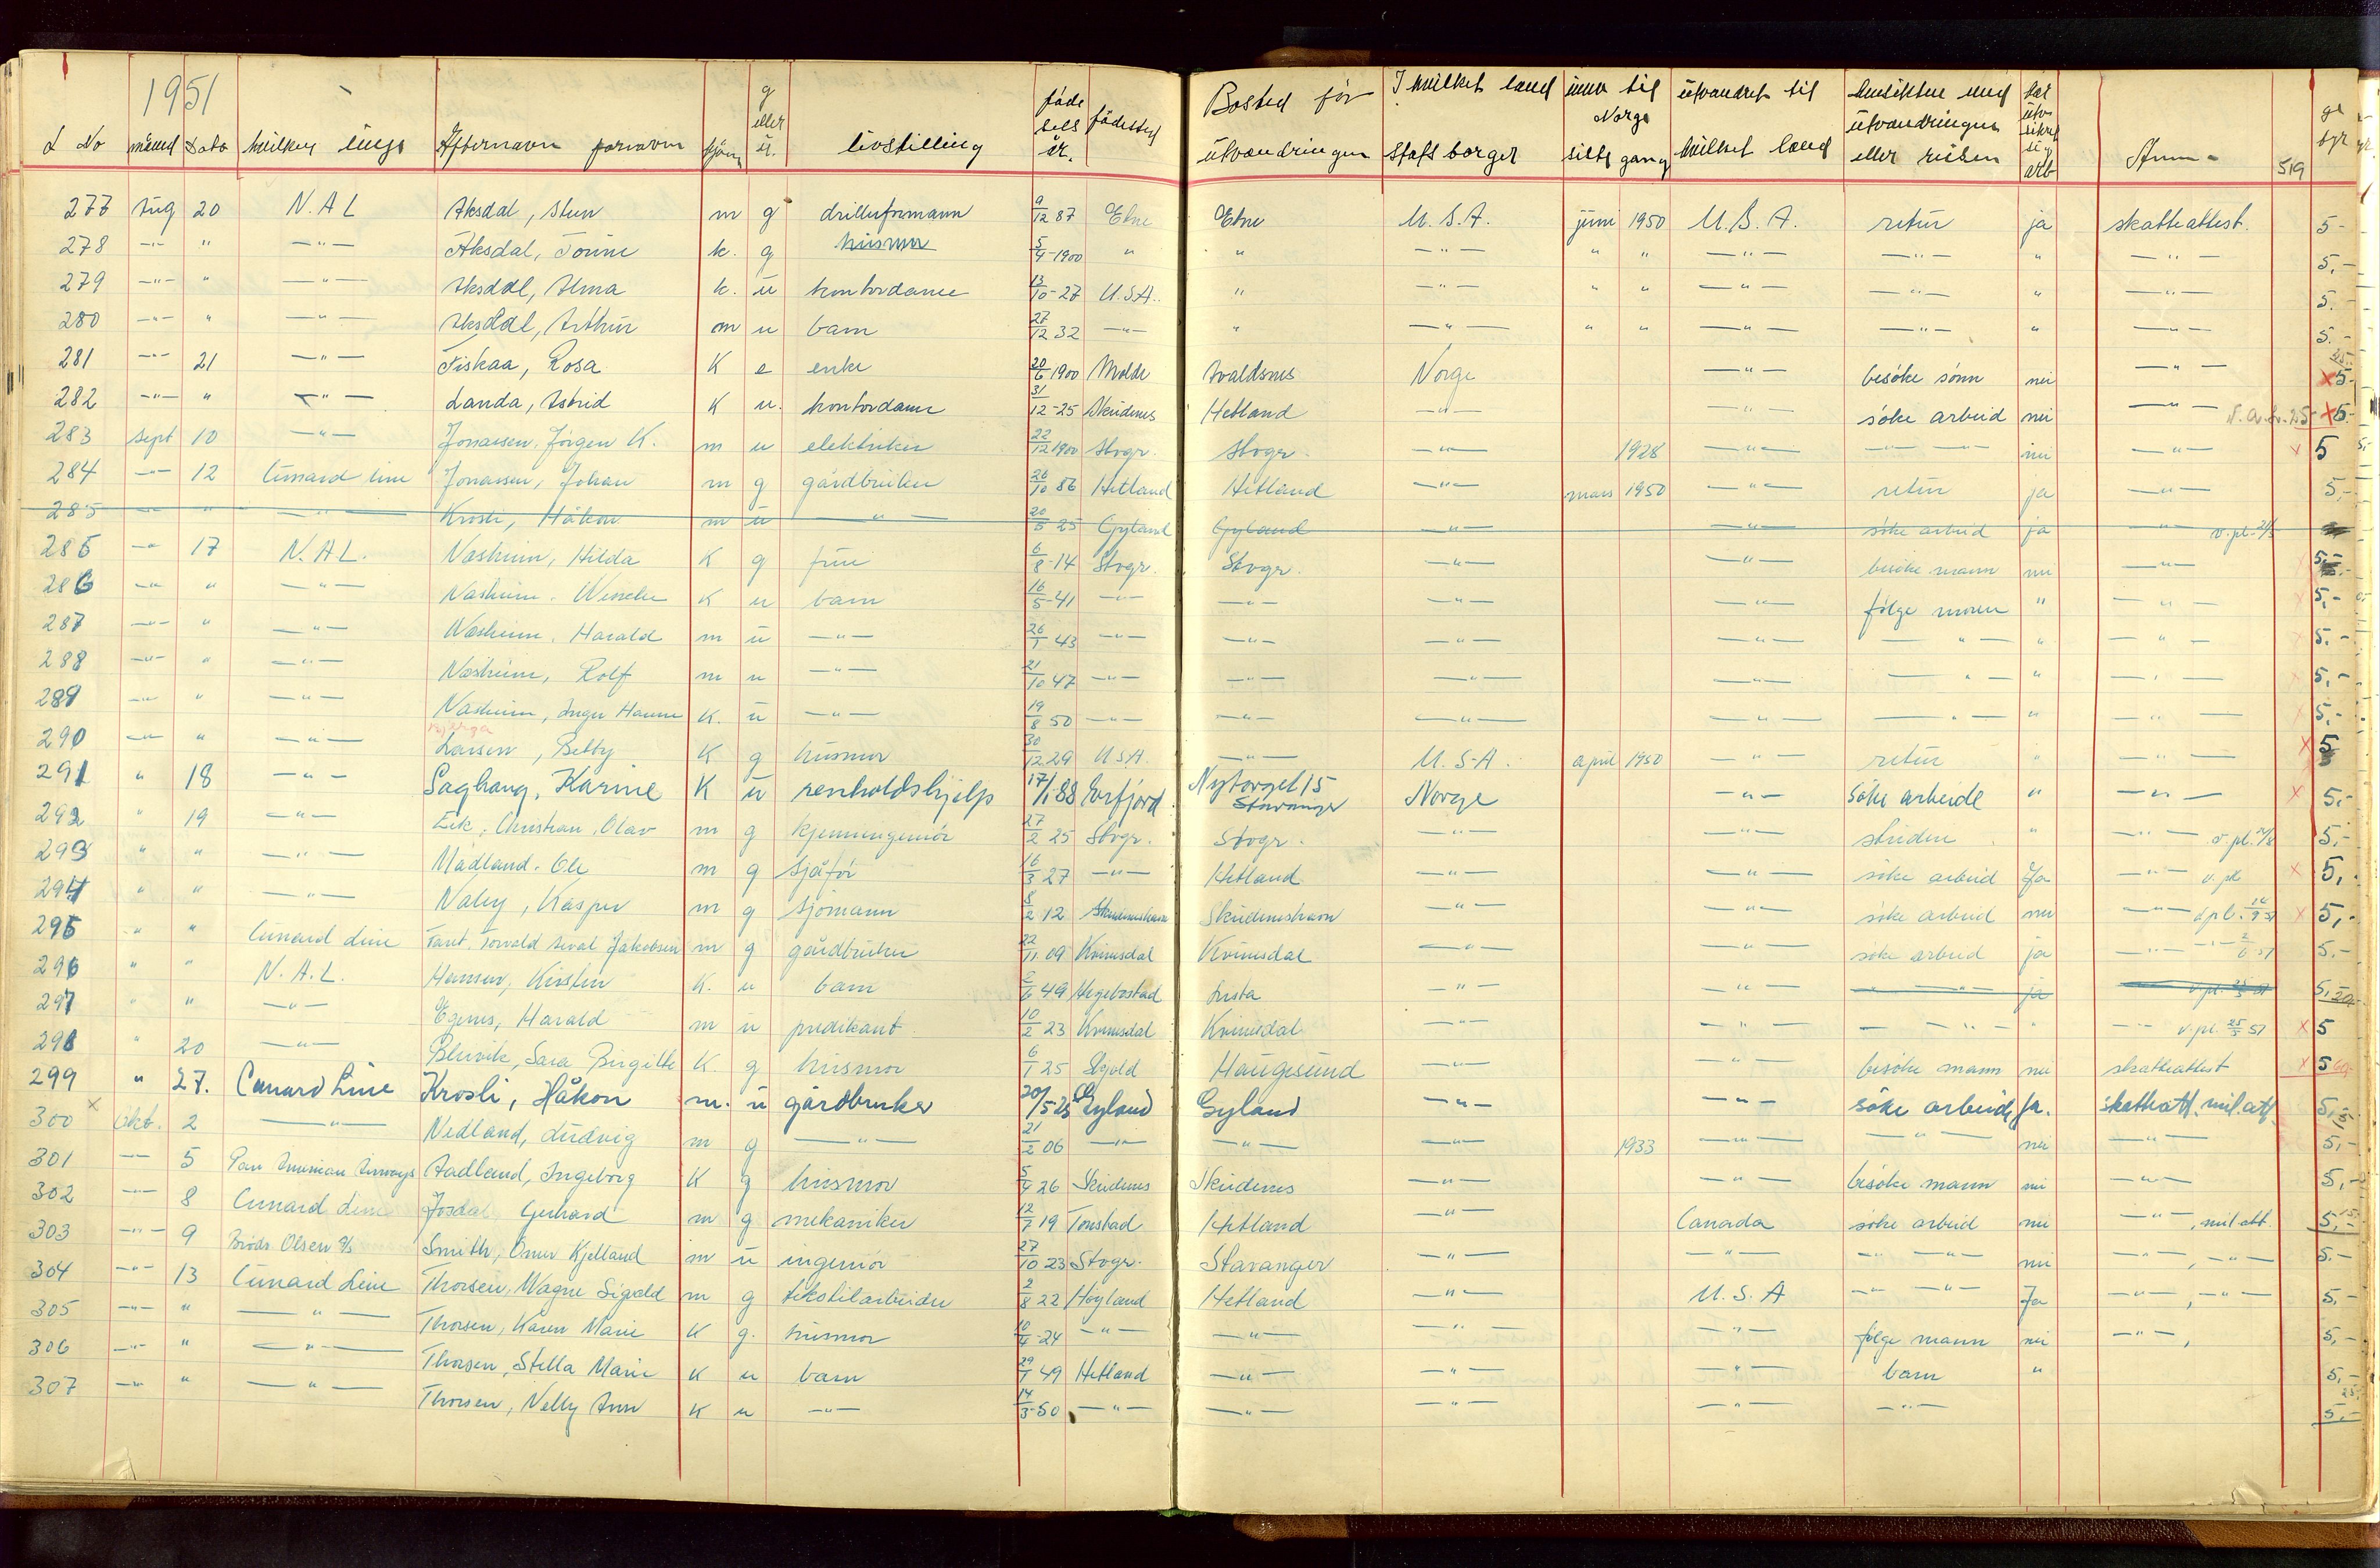 1951
L No månd Dato hvilken linje Efternavn fornavn kjønn g eller u. livstilling fødselsår. fødested Bosted før utvandringen I hvilket land statsborger inn til Norge siste gang utvandret til hvilket land hensikten med utvandringen eller reisen Anm 519
277 Aug 20 N.A.L Aksdal, Sten m g drillerformann 9/12 87 Etne Etne U.S.A. juni 1950 U.S.A. retur ja skatteattest. 5-
278 -"- " -"- Aksdal, Tonine k. g husmor 5/4-1900 " " -"- " " -"- -"- " -"- 5,-
279 -"- " -"- Aksdal, Alma k. u kontordame 13/10-27 U.S.A. " -"- " " -"- -"- " -"- 5.-
280 -"- " -"- Aksdal, Arthur m u barn 27/12 32 -"- " -"- " " -"- -"- " -"- 5.-
281 -"- 21 -"- Fiskaa, Rosa K e enke 20/6 1900 Molde Avaldsnes Norge -"- besøke sønn nei -"- 25- x5-
282 -"- " -"- Landa, Astrid K u. kontordame 31/12-25 Skudenes Hetland -"- -"- søke arbeid nei -"- x5-
283 Sept 10 -"- Jonassen, Jørgen K. m u elektriker 22/12 1900 Stvgr. Stvgr. -"- 1928 -"- -"- nei -"- x 5
284 -"- 12 Cunard line Jonassen, Johan m g gårdbruker 26/10 86 Hetland Hetland -"- mars 1950 -"- retur ja -"- 5,-
285 -"- " -"- Krosli, Håkon m u -"- 20/5 25 Gyland Gyland -"- -"- søke arbeid ja -"- v.pl.
285 -"- 17 N.A.L. Næsheim, Hilda K g frue 6/8-14 Stvgr. Stvgr. -"- -"- besøke mann nei -"- 5,-
286 -"- " -"- Næsheim, Wenche K u barn 16/5-41 -"- -"- -"- -"- følge moren " -"- 5,-
287 -"- " -"- Næsheim, Harald m u -"- 26/1 43 -"- -"- -"- -"- -"- " -"- 5.-
288 -"- " -"- Næsheim, Rolf m u -"- 21/10 47 -"- -"- -"- -"- -"- " -"- 5,-
289 -"- " -"- Næsheim, Inger Hanne K. u -"- 19/8 50 -"- -"- -"- -"- -"- " -"- 5,-
290 -"- " -"- Larsen, Betty K g husmor 30/12 29 U.S.A. -"- U.S.A. april 1950 -"- retur " -"- x 5
291 " 18 -"- Saghaug, Karine K u renholdshjelp 17/1 88 Erfjord Nytorget 15 Stavanger Norge -"- søke arbeide " -"- x 5,-
292 " 19 -"- Eek, Christian Olav m g kjemiingeniør 27/2 25 Stvgr. Stvgr. -"- -"- studere " -"- v.pl. 5,-
293 " " -"- Mådland, Ole m g sjåfør 16/3 27 -"- Hetland -"- -"- søke arbeid Ja -"- v.pl x 5,-
294 " " -"- Naley, Kasper m g sjømann 8/2 12 Skudeneshavn Skudeneshavn -"- -"- søke arbeid nei -"- x 5,-
295 " " Cunard Line Torvald Jakobsen m g gårdbruker 22/11 09 Kvinesdal Kvinesdal -"- -"- søke arbeid ja -"- 5,-
296 " " N.A.L. Hansen, Kirsten K. u barn 2/6 49 Hegebostad Lista -"- -"- -"- ja v.pl. 5,-
297 " " -"- Egenes, Harald m u predikant 10/2 23 Kvinesdal Kvinesdal -"- -"- -"- " -"- v.pl. 25/5 51 x 5
298 " 20 -"- Blikvik, Sara Birgitte K. g husmor 6/1 25 Skjold Haugesund -"- -"- besøke mann nei skatteattest x 5
299 " 27. Cunard Line Krosli, Håkon m. u gårdbruker 20/5 25 Gyland Gyland -"- -"- søke arbeid, Ja. skatteatt. mil.att. 5,-
300 x Okt. 2 -"- Nedland, Ludvig m g -"- 21/2 06 -"- -"- -"- 1933 -"- -"- nei -"- 5,-
301 -"- 5 Pan American Airways Aadland, Ingeborg K g husmor 5/4 26 Skudenes Skudenes -"- -"- besøke mann nei -"- 5,-
302 -"- 8 Cunard Line Josdal Gerhard m g mekaniker 12/7 19 Tonstad Hetland -"- Canada søke arbeid nei -"-, mil att. 5,-
303 -"- 9 Brødr Olsen A/s Smith, Omer Kjelland m u ingeniør 27/10 23 Stvgr. Stavanger -"- -"- -"- -"- nei -"-, -"- 5.-
304 -"- 13 Cunard Line Thorsen, Magne Sigvald m g tekstilarbeider 2/8 22 Høyland Hetland -"- U.S.A -"- -"- Ja -"-, -"- 5,-
305 -"- " -"- Thorsen, Karen Marie K g. husmor 10/4-24 -"- -"- -"- -"- følge mann nei -"-, 5,-
306 -"- " -"- Thorsen, Stella Marie K u barn 29/1 49 Hetland -"- -"- -"- barn " 5,-
307 -"- " -"- Thorsen, Nelly Ann K u -"- 14/3-50 -"- -"- -"- -"- -"- 25 5,-